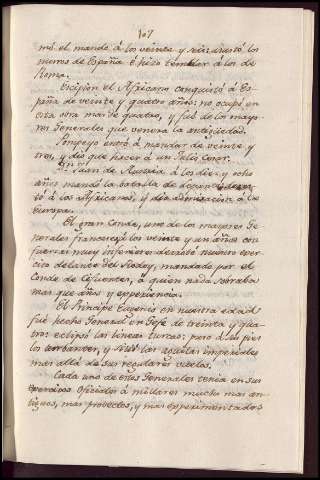 107
mó el mando á los veinte y seis: asustó los
muros de España é hizo temblar á los de
Roma.
Escipion el Africano conquistó á Es-
paña de veinte y quatro años: no ocupó en
esta obra mas de quatro, y fué de los mayo-
res Generales que venera la antigüedad.
Pompeyo entró á mandar de veinte y
tres, y dió que hacer á un Julio Cesar.
Dn. Juan de Austria á los diez y ocho
años mandó la batalla de
tó á los Africanos, y dió admiracion á la
Europa.
El gran Conde, uno de los mayores Ge-
nerales franceses á los veinte y un años con
fuerzas muy inferiores derrotó nuestro exer-
cito delante del Rocroy, mandado por el
Conde de Cifuentes, á quien nada sobraba
mas que años y experiencia.
El Principe Eugenio en nuestra edad
fué hecho General en Gefe de treinta y qua-
tro: eclipsó las lineas turcas: puso á sus pies
los turbantes, y las aguilas imperiales
mas allá de sus regulares vuelos.
Cada uno de estos Generales tenia en sus
exercitos Oficiales á millares mucho mas an-
tiguos, mas provectos, y mas experimentados